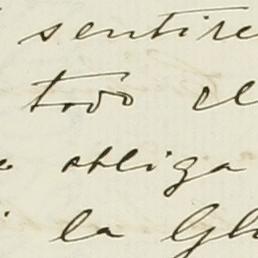 sentire
todo el
obliga
la Gl